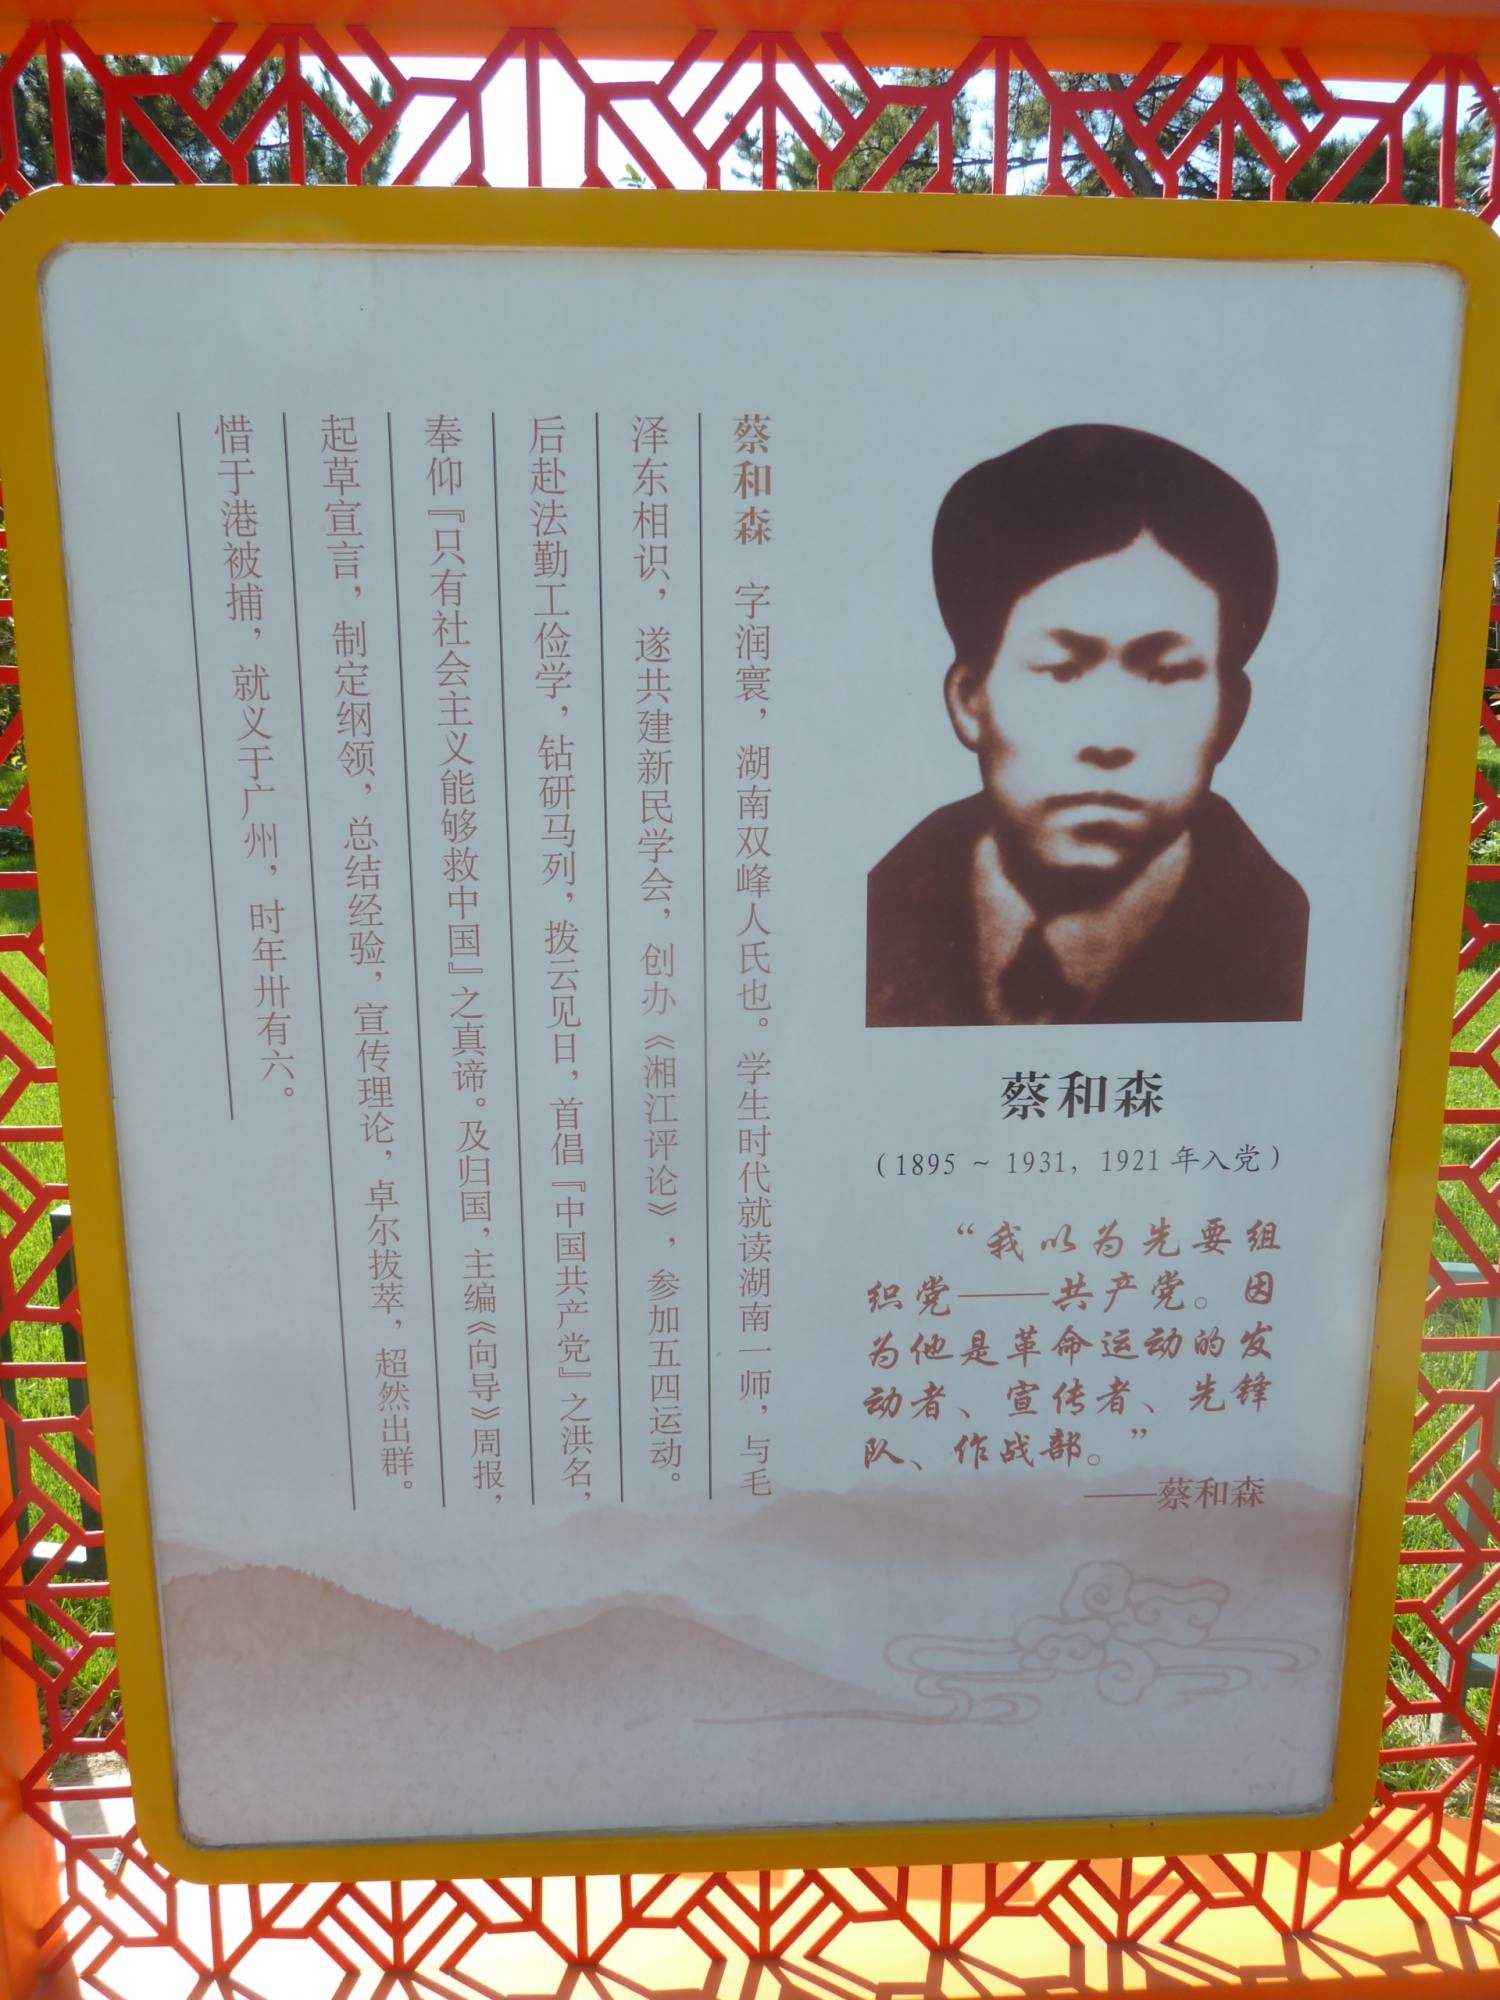 蔡和森
（1895 ~ 1931，1921 年入党）
“我以为先要组
织党——共产党。因
为他是革命运动的发
动者、宣传者、先锋
队、作战部。”
——蔡和森
蔡和森 字润寰，湖南双峰人氏也。学生时代就读湖南一师，与毛
泽东相识，遂共建新民学会，创办《湘江评论》，参加五四运动。
后赴法勤工俭学，钻研马列，拨云见日，首倡『中国共产党』之洪名，
奉仰『只有社会主义能够救中国』之真谛。及归国，主编《向导》周报，
起草宣言，制定纲领，总结经验，宣传理论，卓尔拔萃，超然出群。
惜于港被捕，就义于广州，时年卅有六。